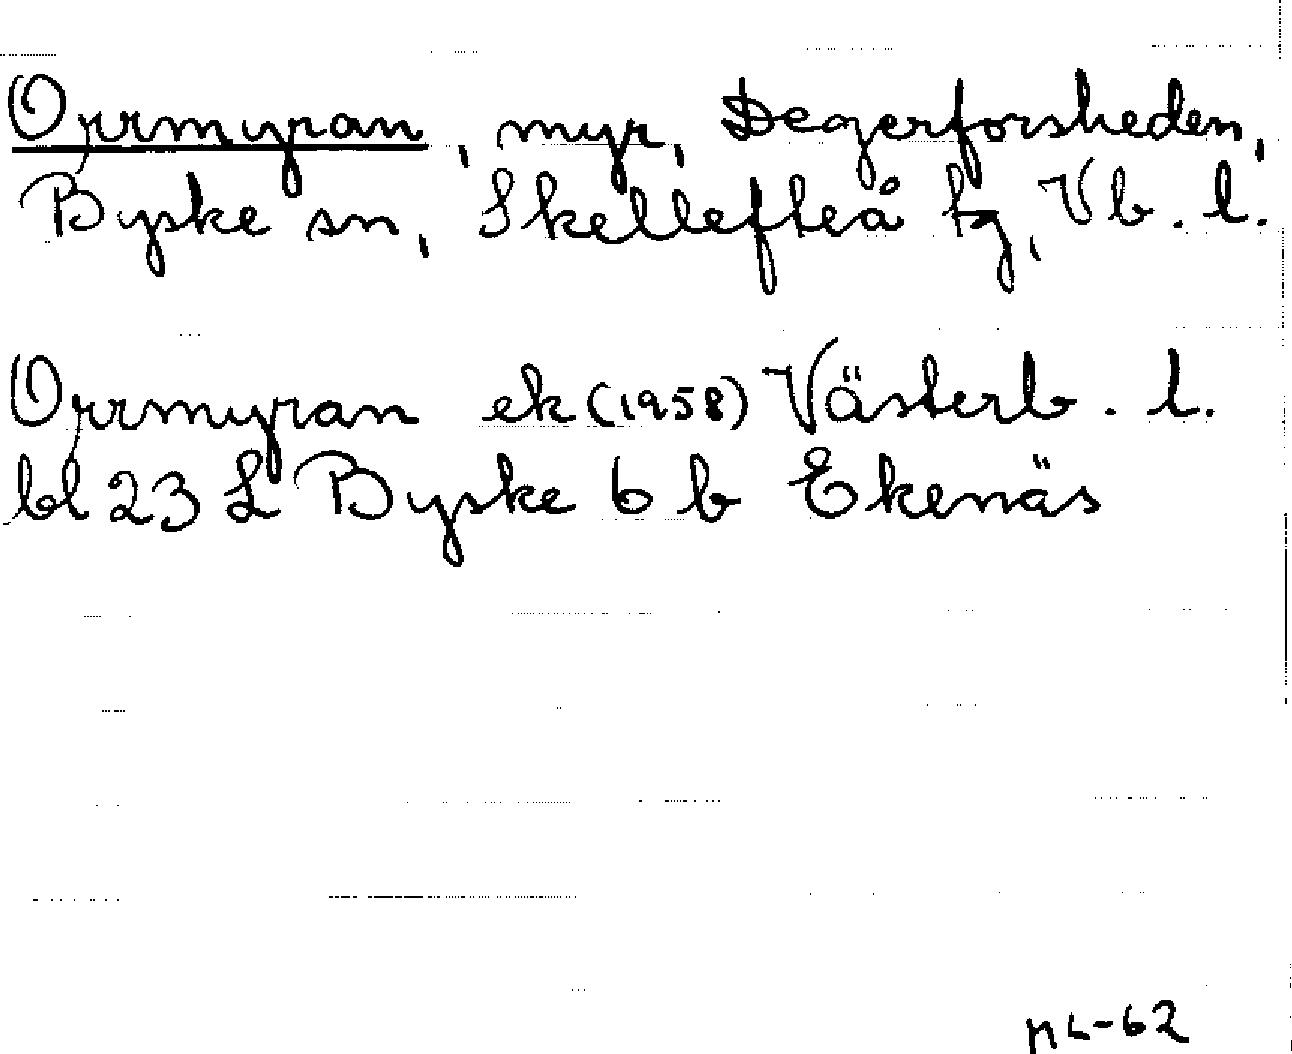 Orrmyran, myr, Degerforsheden,
Byske sn, Skellefteå tg, Vb. l.
Orrmyran ek (1958) Västerb. l.
bl 23 L Byske 6 b Ekenäs
NL-62